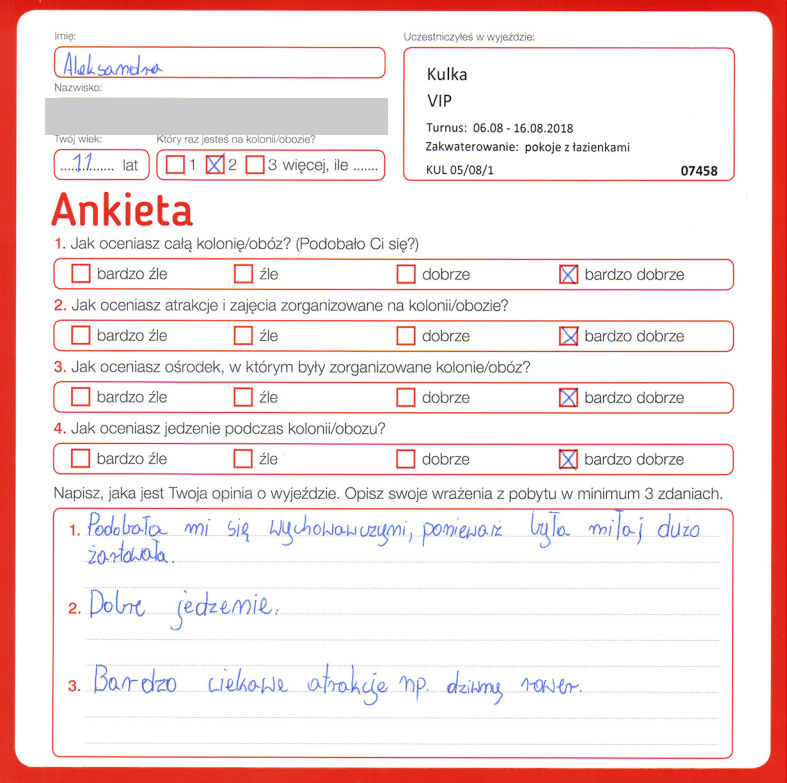 Imię:
Uczestniczyłeś w wyjeździe:
Aleksandra
Kulka
VIP
Nazwisko:
Turnus: 06.08 - 16.08.2018
Zakwaterowanie: pokoje z łazienkami
KUL 05/08/1 07458
Twój wiek: Który raz jesteś na kolonii/obozie?
11 lat 1 2 3 więcej, ile .......
Ankieta
1. Jak oceniasz całą kolonię/obóz? (Podobało Ci się?)
bardzo źle źle dobrze bardzo dobrze
2. Jak oceniasz atrakcje i zajęcia zorganizowane na kolonii/obozie?
bardzo źle źle dobrze bardzo dobrze
3. Jak oceniasz ośrodek, w którym były zorganizowane kolonie/obóz?
bardzo źle źle dobrze bardzo dobrze
4. Jak oceniasz jedzenie podczas kolonii/obozu?
bardzo źle źle dobrze bardzo dobrze
Napisz, jaka jest Twoja opinia o wyjeździe. Opisz swoje wrażenia z pobytu w minimum 3 zdaniach.
1. Podobała mi się wychowawczyni, ponieważ była miła j dużo
żartowała.
2. Dobre jedzenie.
3. Bardzo ciekawe atrakcje np. dziwny rower.